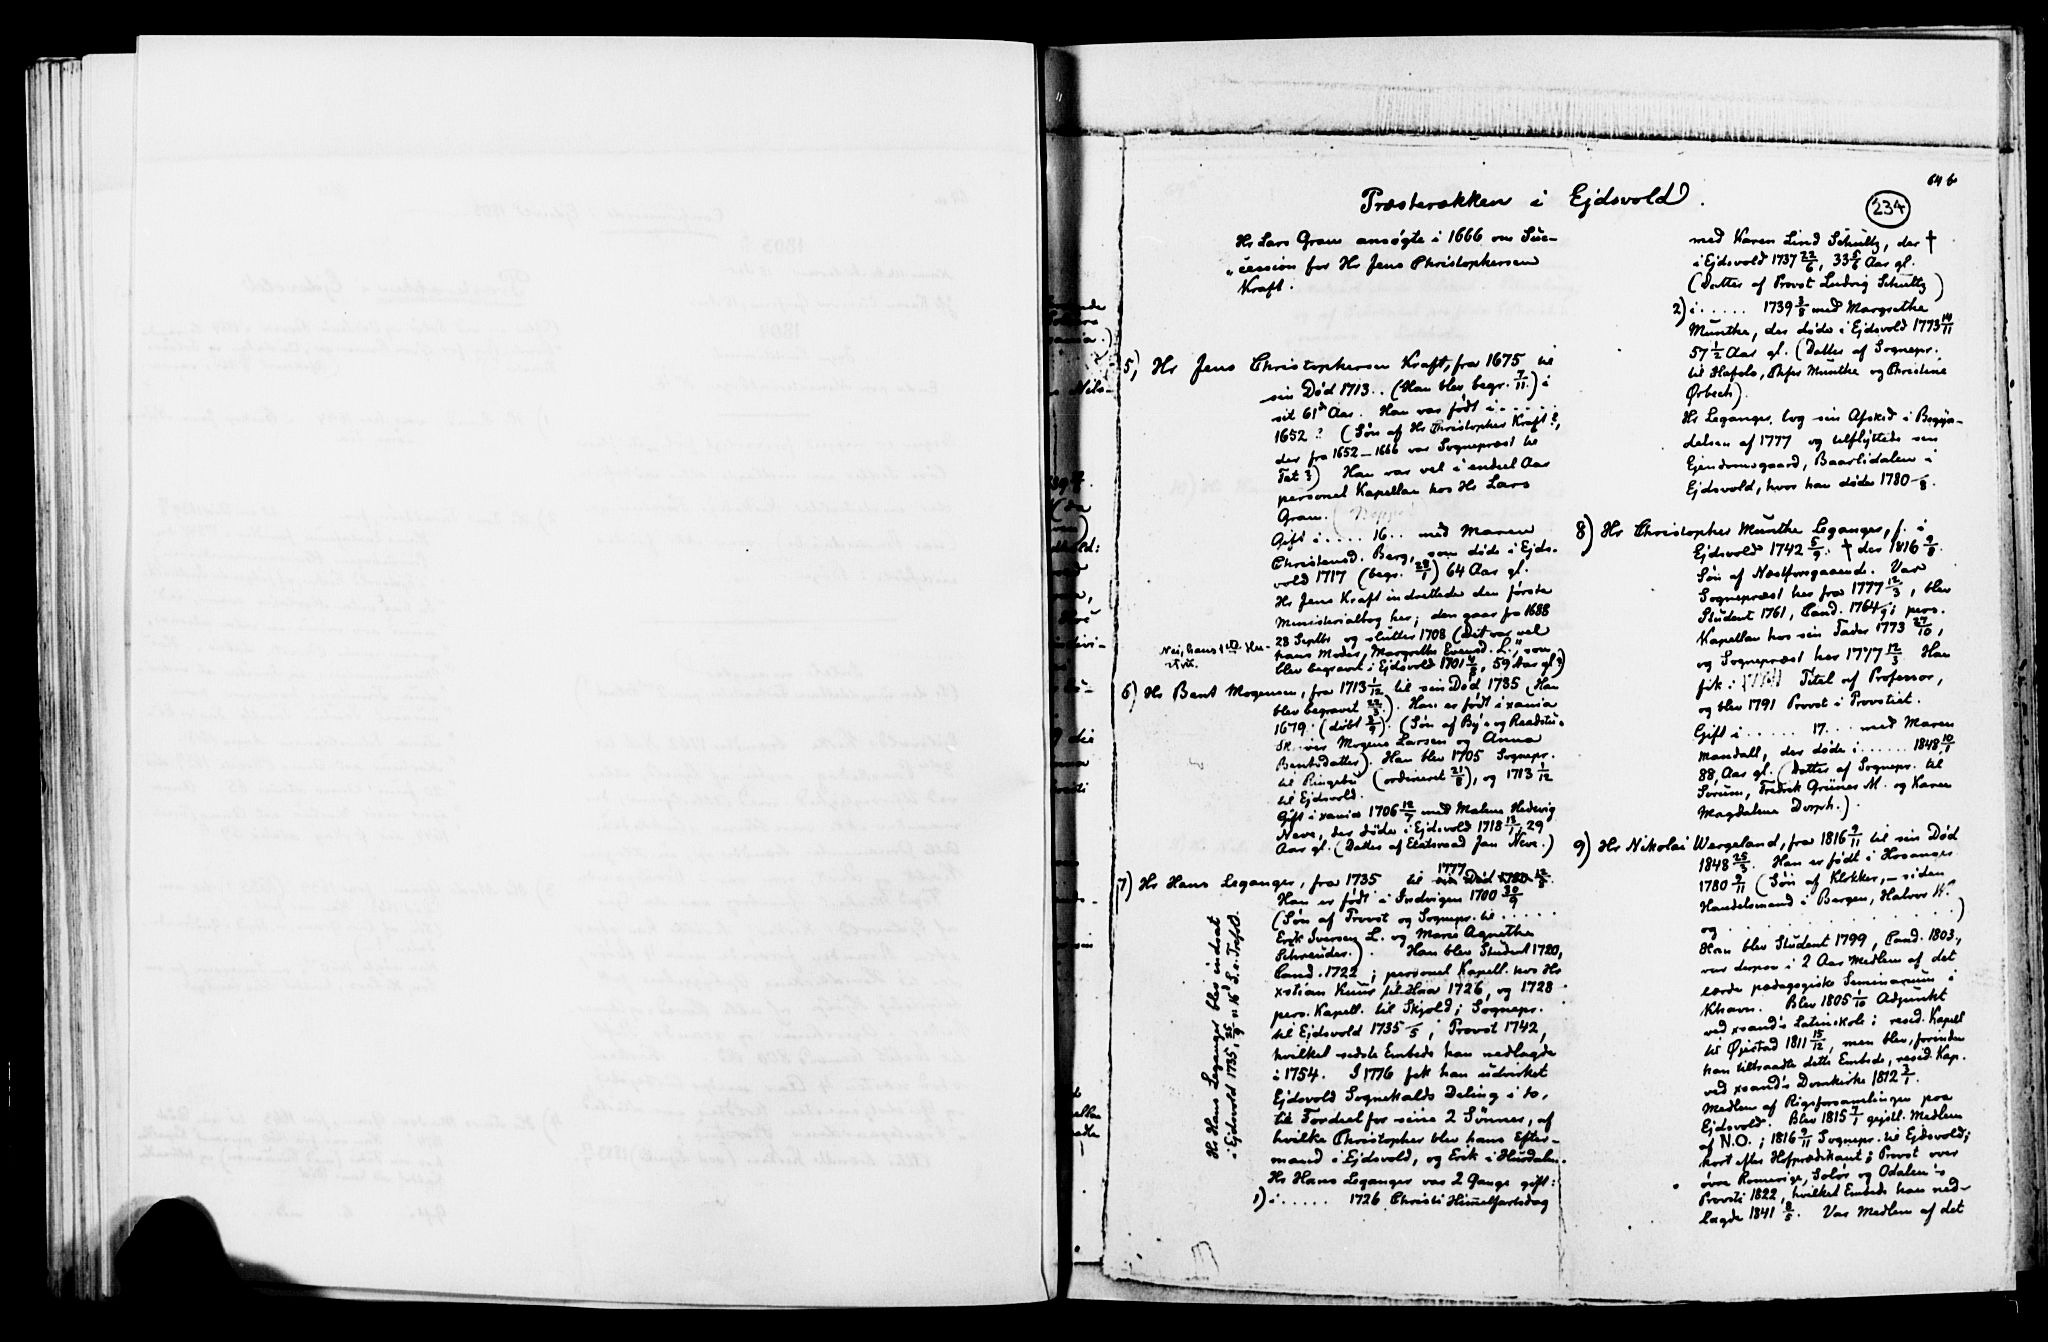 64 b
Præsterækken i Ejdsvold.
234
Hr Lars Gram ansøgte i 1666 om Suc-
cession for Hr Jens Christophersen
Kraft.
5) Hr Jens Christophersen Kraft, fra 1675 til
sin Død 1713.. (Han blev begr. 7/11.) i
sit 61de Aar. Han var født i.....
1652? (Søn af Hr Christopher Kraft?,
der fra 1652–1666 var Sognepræst til
Fet?) Han var vel i endel Aar
personel Kapellan hos Hr Lars
Gram. (Neppe)
Gift i..... 16.. med Maren
Christensd. Berg, som døde i Ejds-
vold 1717 (begr. 28/1) 64 Aar gl.
Hr Jens Kraft indrettede den første
Ministerialbog her; den gaar fra 1688
28 Septbr og slutter 1708 (Det var vel
hans Moder, Margrethe Evensd. L., som
blev begravet i Ejdsvold 1701 4/5, 59 Aar gl?)
Nei, hans 1ste Hu-
stru.
6) Hr Bent Mogensen, fra 1713 1/12 til sin Død 1735 (Han
blev begravet 22/3). Han er født i xania
1679. (døbt 3/9). (Søn af By- og Raadstu-
sk..ver Mogens Larsen og Anna
Bentsdatter). Han blev 1705 Sognepr.
til Ringebu (ordineret 21/8), og 1713 1/12
til Ejdsvold.
Gift i xania 1706 12/7 med Malene Hedevig
Neve, der døde i Ejdsvold 1718 13/1, 29
Aar gl. (Datter af Etatsraad Jan Neve.)
7) Hr Hans Leganger, fra 1735 til 1777 sin Død 1780 12/3.
Han er født i Indvigen 1700 30/9
(Søn af Provst og Sognepr. til.....
Erik Iversen L. og Maren Agnethe
Schreuder.). Han blev Student 1720,
Cand. 1722; personel Kapell. hos Hr
xstian Kuur til Haa 1726, og 1728
pers. Kapell. til Skjold; Sognepr.
til Ejdsvold 1735 /5; Provst 1742,
hvilket sidste Embede han nedlagde
i 1754. I 1776 fik han udvirket
Ejdsvold Sognekalds Deling i to,
til Fordeel for sine 2 Sønner, af
hvilke Christopher blev hans Efter-
mand i Ejdsvold, og Erik i Hurdalen.
Hr Hans Leganger var 2 Gange gift:
1) i..... 1726 Christi Himmelfartsdag
Hr Hans Leganger blev indsat
i Ejdsvold 1735, 25/9 n: 16d S. e. Trefd.
med Karen Lind Schultz, der †
i Ejdsvold 1737 22/6, 33 5/6 Aar gl.
(Datter af Provst Ludvig Schultz)
2) i..... 1739 3/5 med Margrethe
Munthe, der døde i Ejdsvold 1773 14/11
57 1/2 Aar gl. (Datter af Sognepr.
til Hafslo, Chfer Munthe og Christine
Ørbech).
Hr Leganger tog sin Afsked i Begyn-
delsen af 1777 og tilflyttede sin
Ejendomsgaard, Baarlidalen i
Ejdsvold, hvor han døde 1780 /8.
8) Hr Christopher Munthe Leganger, f. i
Ejdsvold 1742 5/9. † der 1816 9/9.
Søn af Næstforegaaende. Var
Sognepræst her fra 1777 12/3, blev
Student 1761, Cand. 1764 /9; pers.
Kapellan hos sin Fader 1773 27/10,
og Sognepræst her 1777 12/3. Han
fik: Titel af Professor,
og blev 1791 Provst i Provstiet.
Gift i..... 17... med Maren
Mandall, der døde i..... 1848 10/1
88 Aar gl. (Datter af Sognepr. til
Sørum, Fredrik Grüner M. og Karen
Magdalene Dorph.).
9) Hr Nikolai Wergeland, fra 1816 9/11 til sin Død
1848 25/3. Han er født i Hosanger
1780 9/11 (Søn af Klokker, – siden
Handelsmand i Bergen, Halvor W.
og . . . . . . . . . . . )
Han blev Student 1799, Cand. 1803,
var derpaa i 2 Aar Medlem af det
lærde pædagogiske Seminarium i
Khavn. Blev 1805 1/10 Adjunkt
ved xsand's Latinskole; resid. Kapell
til Øiestad 1811 15/12, men blev, forinden
han tiltraadte dette Embede, resid. Kap.
ved xsand's Domkirke 1812 3/1.
Medlem af Rigsforsamlingen paa
Ejdsvold. Blev 1815 7/1 gejstl. Medlem
af N.O.; 1816 9/11 Sognepr. til Ejdsvold;
kort efter Hofprædikant; Provst over
øvre Romerige, Solør og Odalen's
Provsti 1822, hvilket Embede han ned-
lagde 1841 8/5. Var Medlem af det